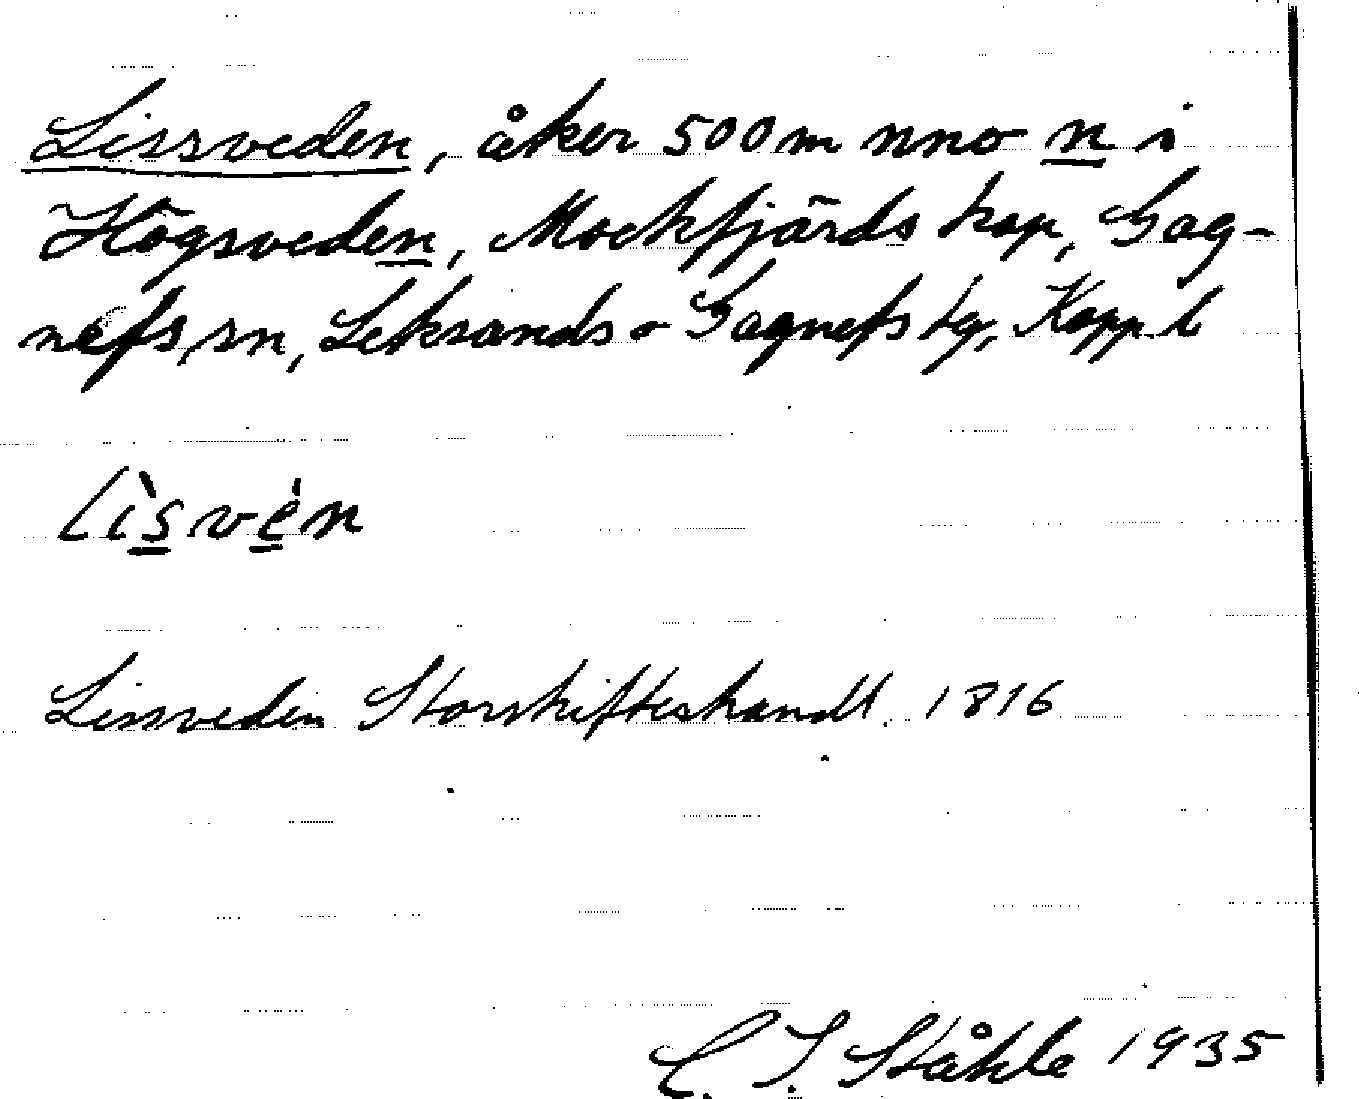 Lissveden, åker 500 m nno n i
Högsveden, Mockfjärds kap, Gag-
nefs sn, Leksands o Gagnefs tg, Kopp l
lìsvèn
Lissveden Storskifteshandl. 1816
C. I. Ståhle 1935